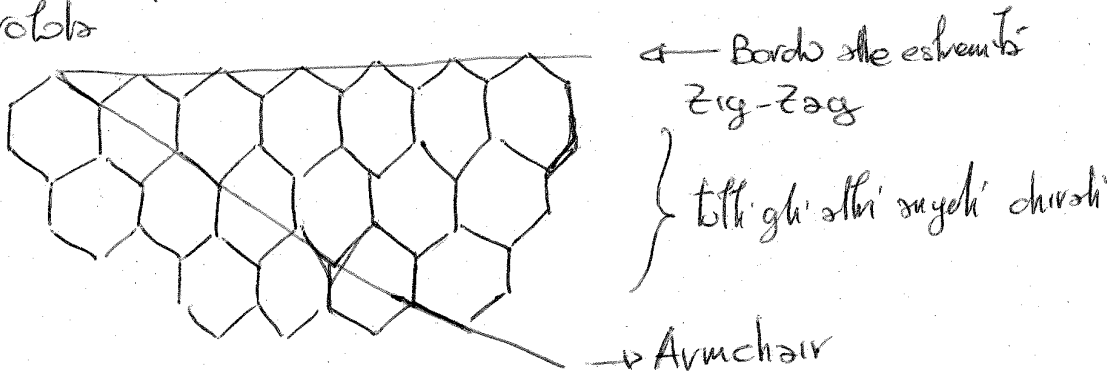 ← Bordo alle estremità
Zig-Zag
tutti gli altri angoli chirali
→ Armchair